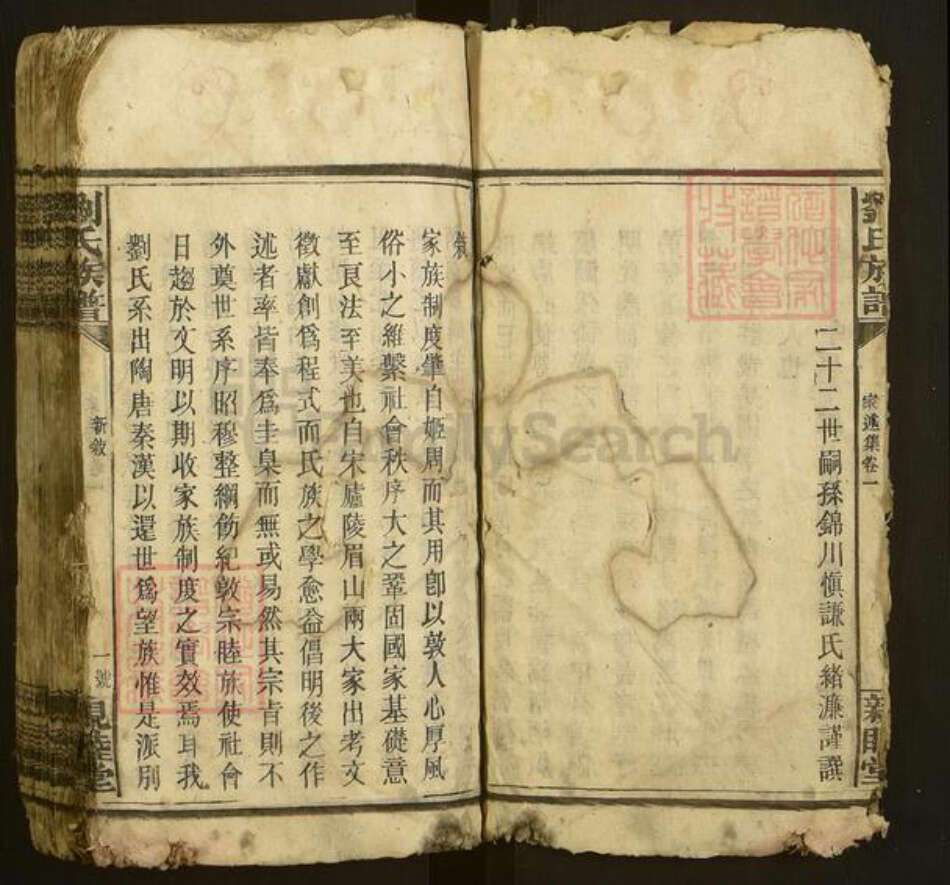 劉氏族譜
宗遜集卷一
親睦堂
二十二世嗣孫錦川愼謙氏緒濂謹譔
敘
家族制度肇自姬周而其用卽以敦人心厚風
俗小之維繫社會秩序大之鞏固國家基礎意
至良法至美也自宋廬陵眉山兩大家出考文
徵獻創爲程式而氏族之學愈益倡明後之作
述者率皆奉爲圭臬而無或易然其宗旨則不
外奠世系序昭穆整綱飭紀敦宗睦族使社會
日趨於文明以期收家族制度之實效焉耳我
劉氏系出陶唐秦漢以還世爲望族惟是派別
劉氏族譜
新敘
一號
親睦堂
FamilySearch